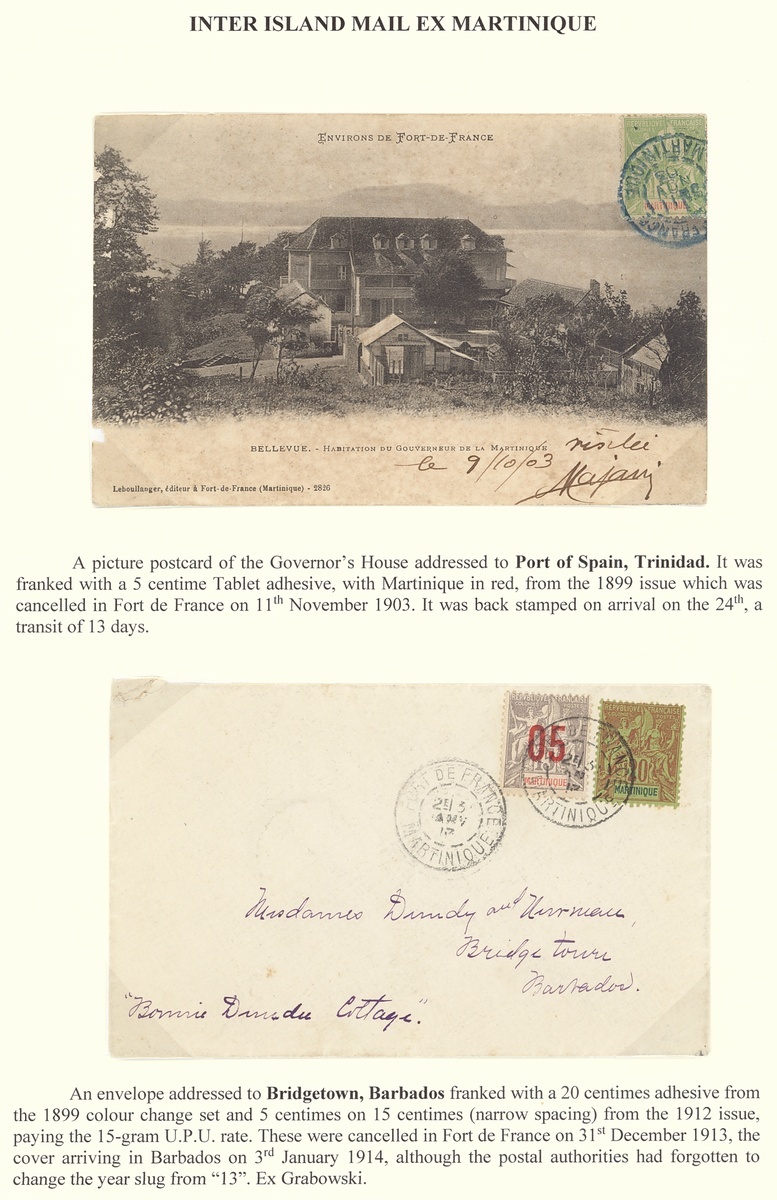 INTER ISLAND MAIL EX MARTINIQUE
ENVIRONS DE FORT-DE-FRANCE
MARTINIQUE
BELLEVUE. - HABITATION DU GOUVERNEUR DE LA MARTINIQUE
le 9/10/03
Leboullanger, éditeur à Fort-de-France (Martinique) - 2826
A picture postcard of the Governor's House addressed to Port of Spain, Trinidad. It was
franked with a 5 centime Tablet adhesive, with Martinique in red, from the 1899 issue which was
cancelled in Fort de France on 11th November 1903. It was back stamped on arrival on the 24th, a
transit of 13 days.
05
MARTINIQUE
MARTINIQUE
FORT DE FRANCE
MARTINIQUE
Mesdames Dundy and
Bridgetown
Barbados.
"Bonnie Dundee Cottage".
An envelope addressed to Bridgetown, Barbados franked with a 20 centimes adhesive from
the 1899 colour change set and 5 centimes on 15 centimes (narrow spacing) from the 1912 issue,
paying the 15-gram U.P.U. rate. These were cancelled in Fort de France on 31st December 1913, the
cover arriving in Barbados on 3rd January 1914, although the postal authorities had forgotten to
change the year slug from "13". Ex Grabowski.